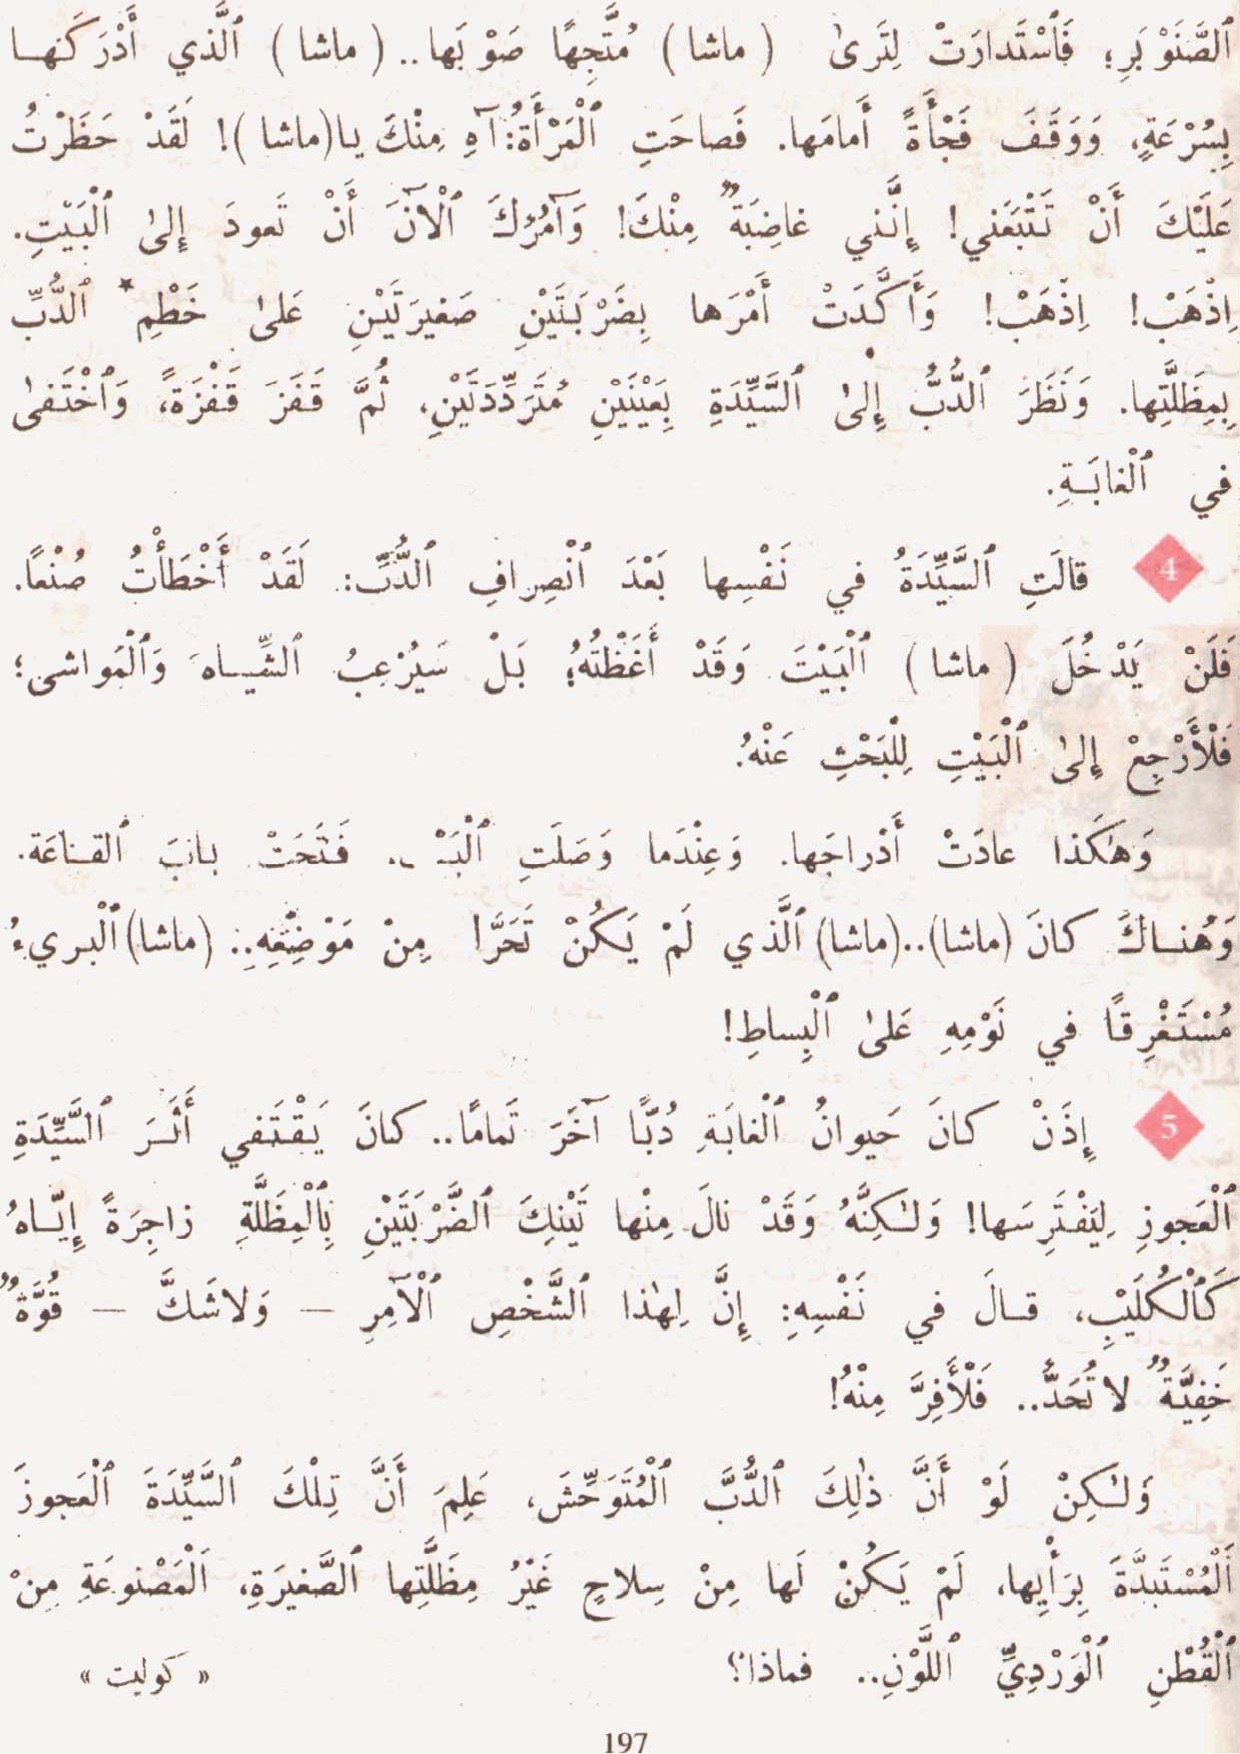 ٱلصَّنَوْبَرِ؛ فَٱسْتَدارَتْ لِتَرىٰ (ماشا) مُتَّجِهًا صَوْبَها.. (ماشا) ٱلَّذي أَدْرَكَها
بِسُرْعَةٍ، وَوَقَفَ فَجْأَةً أَمامَها. فَصاحَتِ ٱلْمَرْأَةُ: آهِ مِنْكَ يا(ماشا)! لَقَدْ حَظَرْتُ
عَلَيْكَ أَنْ تَتْبَعَني! إِنَّني غاضِبَةٌ مِنْكَ! وَآمُرُكَ ٱلْآنَ أَنْ تَعودَ إِلىٰ ٱلْبَيْتِ.
اِذْهَبْ! اِذْهَبْ! وَأَكَّدَتْ أَمْرَها بِضَرْبَتَيْنِ صَغيرَتَيْنِ عَلىٰ خَطْمِ* ٱلدُّبِّ
بِمِظَلَّتِها. وَنَظَرَ ٱلدُّبُّ إِلىٰ ٱلسَّيِّدَةِ بِعَيْنَيْنِ مُتَرَدِّدَتَيْنِ، ثُمَّ قَفَزَ قَفْزَةً، وَٱخْتَفىٰ
في ٱلْغابَةِ.
4 قالَتِ ٱلسَّيِّدَةُ في نَفْسِها بَعْدَ ٱنْصِرافِ ٱلدُّبِّ: لَقَدْ أَخْطَأْتُ صُنْعًا.
فَلَنْ يَدْخُلَ (ماشا) ٱلْبَيْتَ وَقَدْ أَغَظْتُهُ؛ بَلْ سَيُرْعِبُ ٱلشِّياهَ وَٱلْمَواشي؛
فَلْأَرْجِعْ إِلىٰ ٱلْبَيْتِ لِلْبَحْثِ عَنْهُ.
وَهٰكَذا عادَتْ أَدْراجَها. وَعِنْدَما وَصَلَتِ فَتَحَتْ بابَ ٱلقاعَة.
وَهُناكَ كانَ (ماشا)..(ماشا) ٱلَّذي لَمْ يَكُنْ تَحَرَّا مِنْ مَوْضِعِهِ.. (ماشا) ٱلْبريءُ
مُسْتَغْرِقًا في نَوْمِهِ عَلىٰ ٱلْبِساطِ!
5 إِذَنْ كانَ حَيوانُ ٱلْغابَةِ دُبًّا آخَرَ تَمامًا.. كانَ يَقْتَفي أَثَرَ ٱلسَّيِّدَةِ
ٱلْعَجوزِ لِيَفْتَرِسَها! وَلٰكِنَّهُ وَقَدْ نالَ مِنْها تَيْنِكَ ٱلضَّرْبَتَيْنِ بِٱلْمِظَلَّةِ زاجِرَةً إِيّاهُ
كَٱلْكُلَيْبِ، قالَ في نَفْسِهِ: إِنَّ لِهٰذا ٱلشَّخْصِ ٱلْآمِرِ – وَلاشَكَّ – قُوَّةٌ
خَفِيَّةٌ لاتُحَدُّ.. فَلْأَفِرَّ مِنْهُ!
وَلٰكِنْ لَوْ أَنَّ ذٰلِكَ ٱلدُّبَّ ٱلْمُتَوَحِّشَ، عَلِمَ أَنَّ تِلْكَ ٱلسَّيِّدَةَ ٱلْعَجوزَ
ٱلْمُسْتَبِدَّةَ بِرَأْيِها، لَمْ يَكُنْ لَها مِنْ سِلاحٍ غَيْرُ مِظَلَّتِها ٱلصَّغيرَةِ، ٱلْمَصْنوعَةِ مِنْ
ٱلْقُطْنِ ٱلْوَرْدِيِّ ٱللَّوْنِ.. فماذا؟ « كوليت »
197